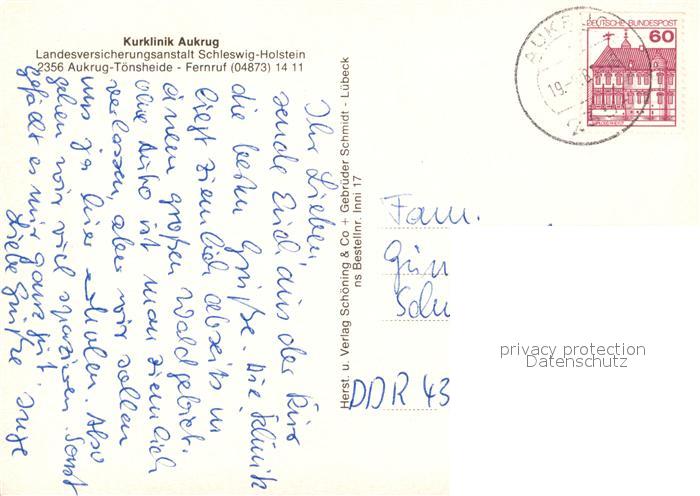 Kurklinik Aukrug
Landesversicherungsanstalt Schleswig-Holstein
2356 Aukrug-Tönsheide - Fernruf (04873) 14 11
Ihr Lieben
sende Euch aus der Kur
die besten Grüße. Die Klinik
liegt ziemlich abseits in
einem großen Waldgebiet.
ohne Auto ist man ziemlich
verlassen, aber wir sollen
uns ja hier erholen. Also
gehen wir viel spazieren. Sonst
gefällt es mir ganz gut.
Liebe Grüße Inge
Herst. u. Verlag Schöning & Co + Gebrüder Schmidt - Lübeck
ns Bestellnr. Inni 17
DEUTSCHE BUNDESPOST
60
AUKRUG
19.
2
Fam.
Gün
Schu
DDR 43
privacy protection
Datenschutz